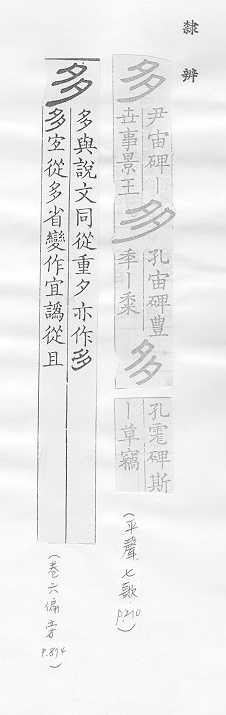 隸辨
多 尹宙碑丨
世事景王
多 孔宙碑豐
秊丨黍
多 孔碑斯
丨草竊
(平聲七歌 p.210)
多 多與說文同從重夕亦作多
多宜從多省變作宜譌從且
(卷六偏旁 p.874)